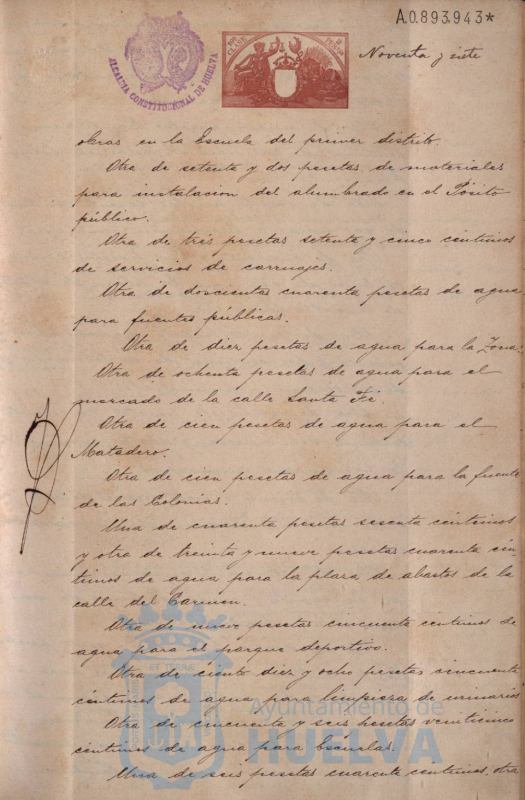 A.0.893.943*
ALCALDIA CONSTITUCIONAL DE HUELVA
Noventa y siete
obras en la Escuela del primer distrito.
Otra de setenta y dos pesetas de materiales
para instalacion del alumbrado en el Pósito
público.
Otra de tres pesetas setenta y cinco centimos
de servicios de carruajes.
Otra de doscientas cuarenta pesetas de agua
para fuentes públicas.
Otra de diez pesetas de agua para la Zona.
Otra de ochenta pesetas de agua para el
mercado de la calle Santa Fé.
Otra de cien pesetas de agua para el
Matadero.
Otra de cien pesetas de agua para la fuente
de las Colonias.
Una de cuarenta pesetas sesenta céntimos
y otra de treinta y nueve pesetas cuarenta cén
timos de agua para la plaza de abastos de la
calle del Carmen.
Otra de nueve pesetas cincuenta centimos de
agua para el parque deportivo.
Otra de ciento diez y ocho pesetas cincuenta
céntimos de agua para limpieza de urinarios
Otra de cincuenta y seis pesetas veinticinco
centimos de agua para Escuelas.
Una de seis pesetas cuarenta centimos, otra
Ayuntamiento de
HUELVA